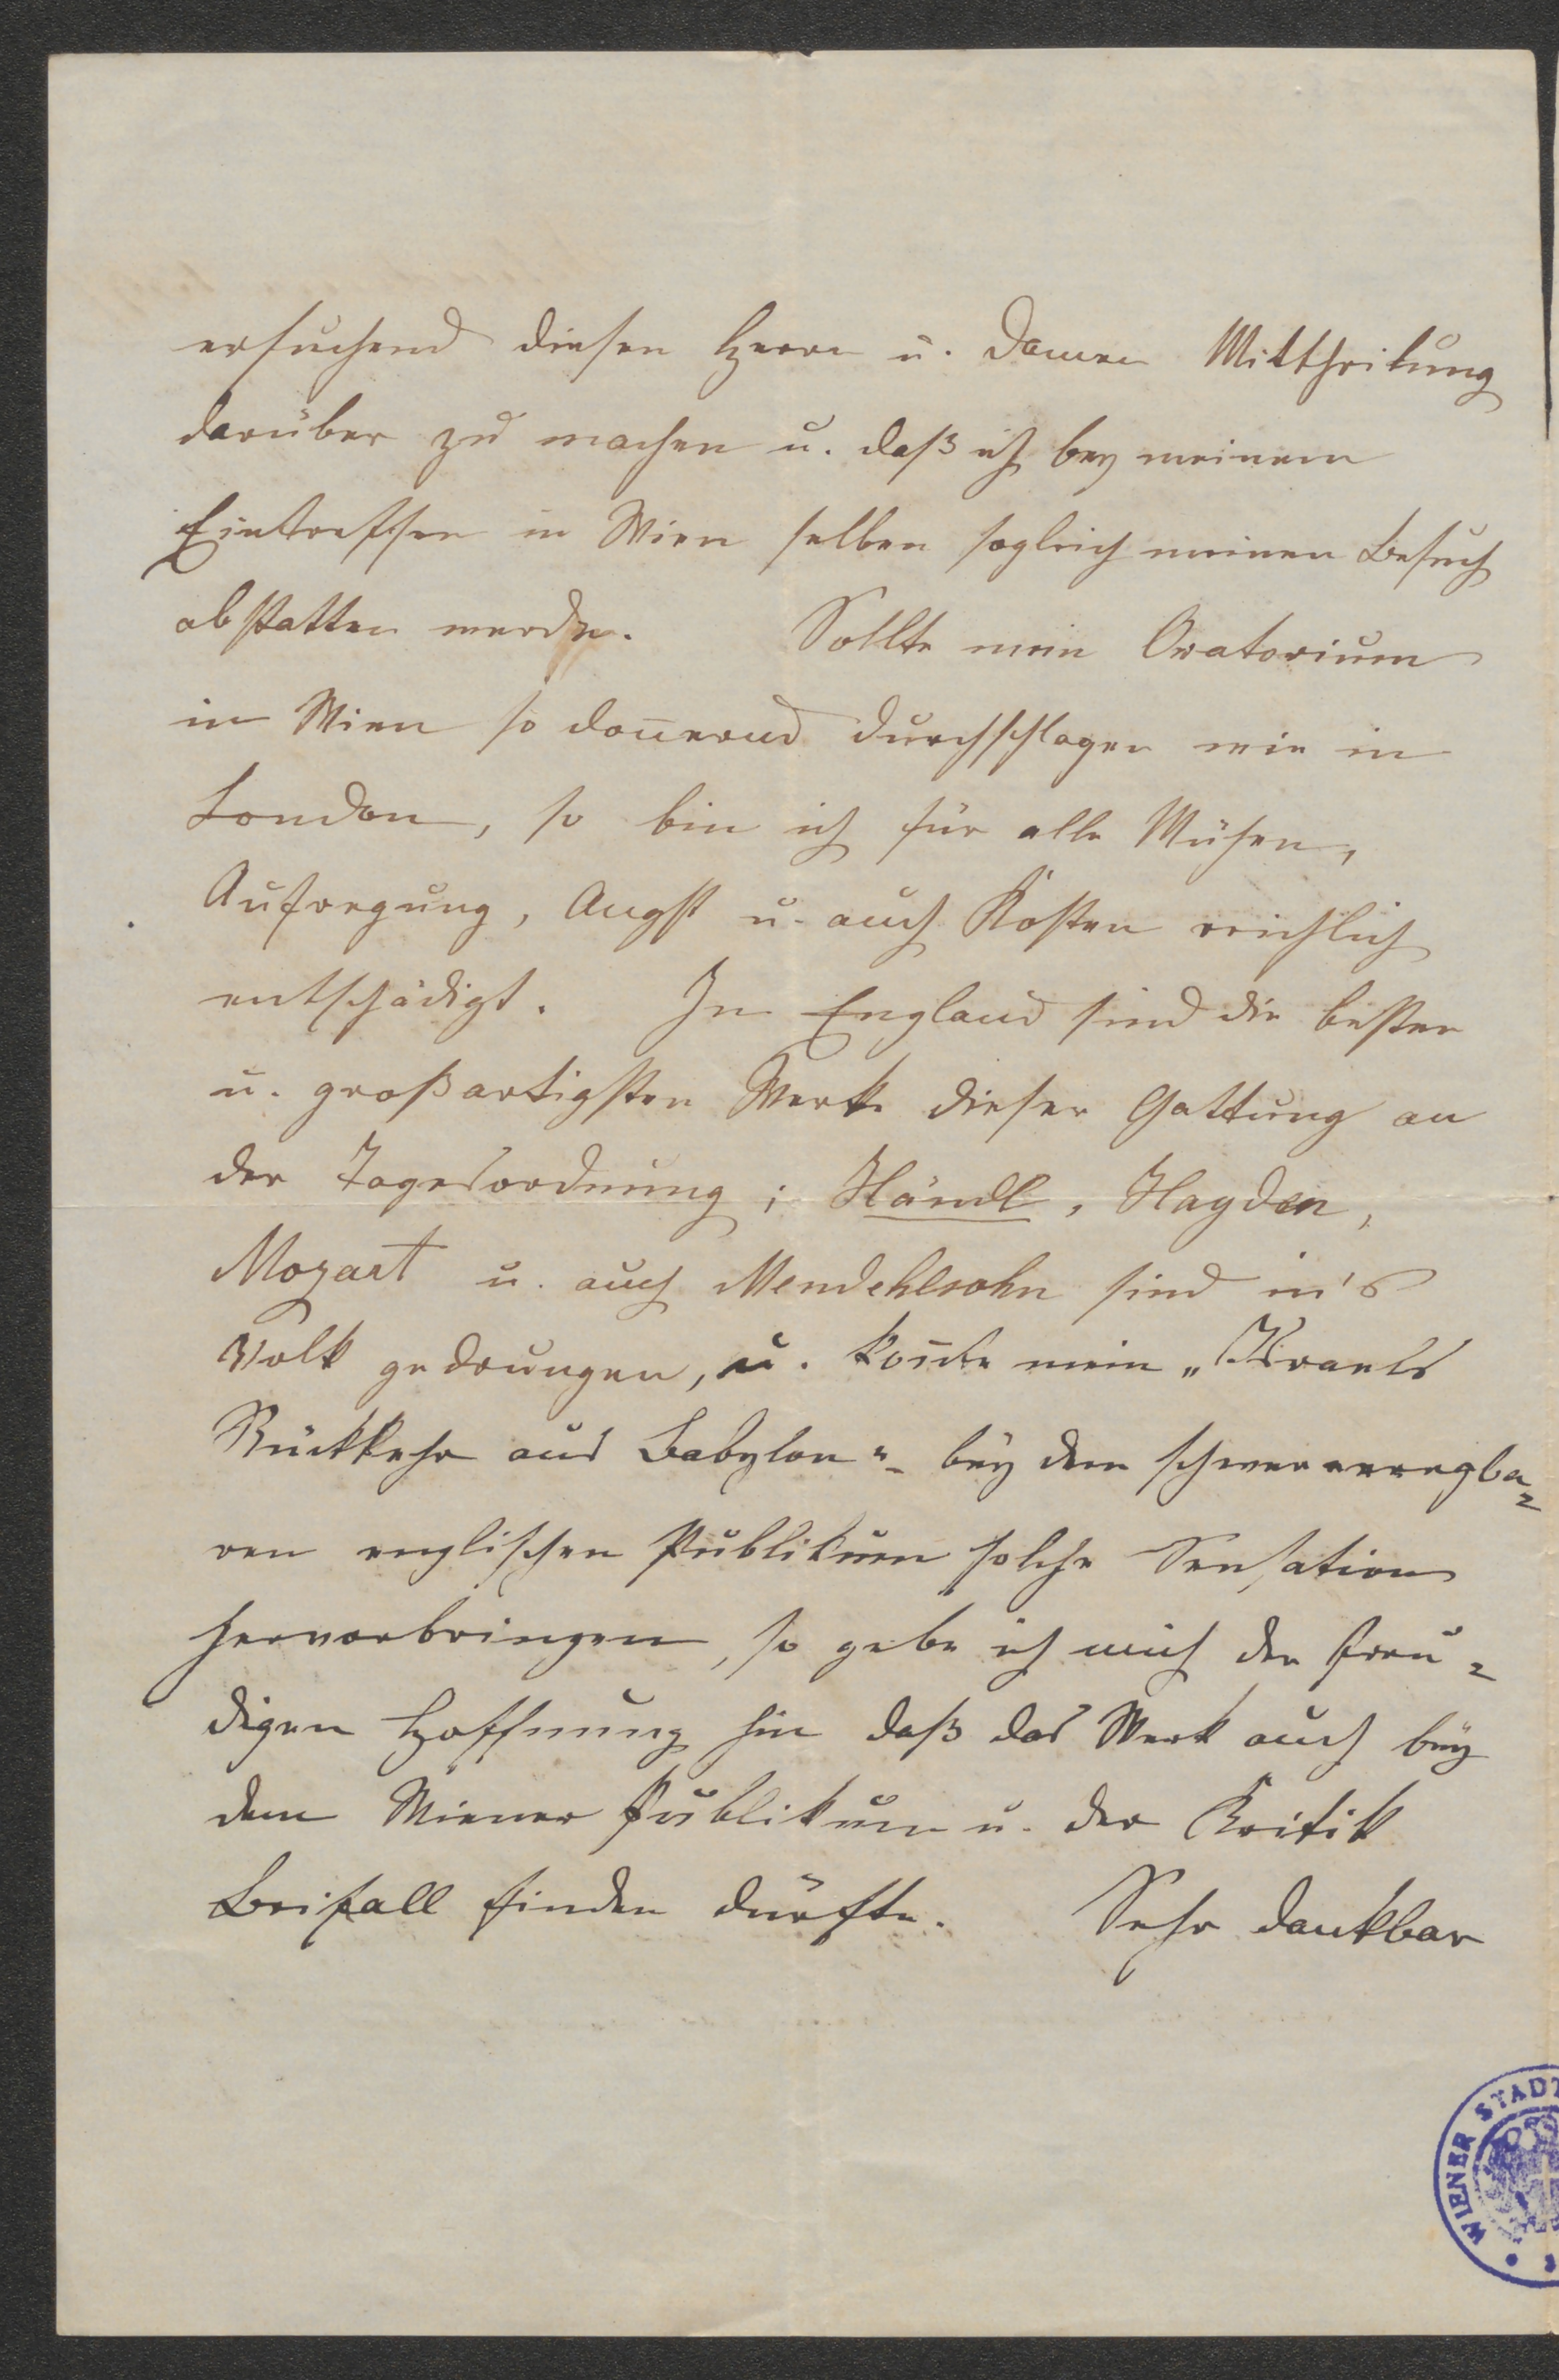 ersuchend diesen Herrn u. Damen Mittheilung
darüber zu machen u. daß ich bey meinem
Eintreffen in Wien selben sogleich meinen Besuch
abstatten werde. Sollte mein Oratorium
in Wien so don̄ernd durchschlagen wie in
London, so bin ich für alle Mühen,
Aufregung, Angst u. auch Kosten reichlich
entschädigt. In England sind die besten
u. großartigsten Werke dieser Gattung an
der Tagesordnung; Händl, Hayden,
Mozart u. auch Mendehlsohn sind in's
Volk gedrungen, u. kon̄te mein „Israels
Rückkehr aus Babylon" bey dem schwer erregba=
ren englischen Publikum solche Sensation
hervorbringen, so gebe ich mich der freu=
digen Hoffnung hin daß das Werk auch bey
dem Wiener Publikum u. der Kritik
Beifall finden dürfte. Sehr dankbar
WIENER STADT